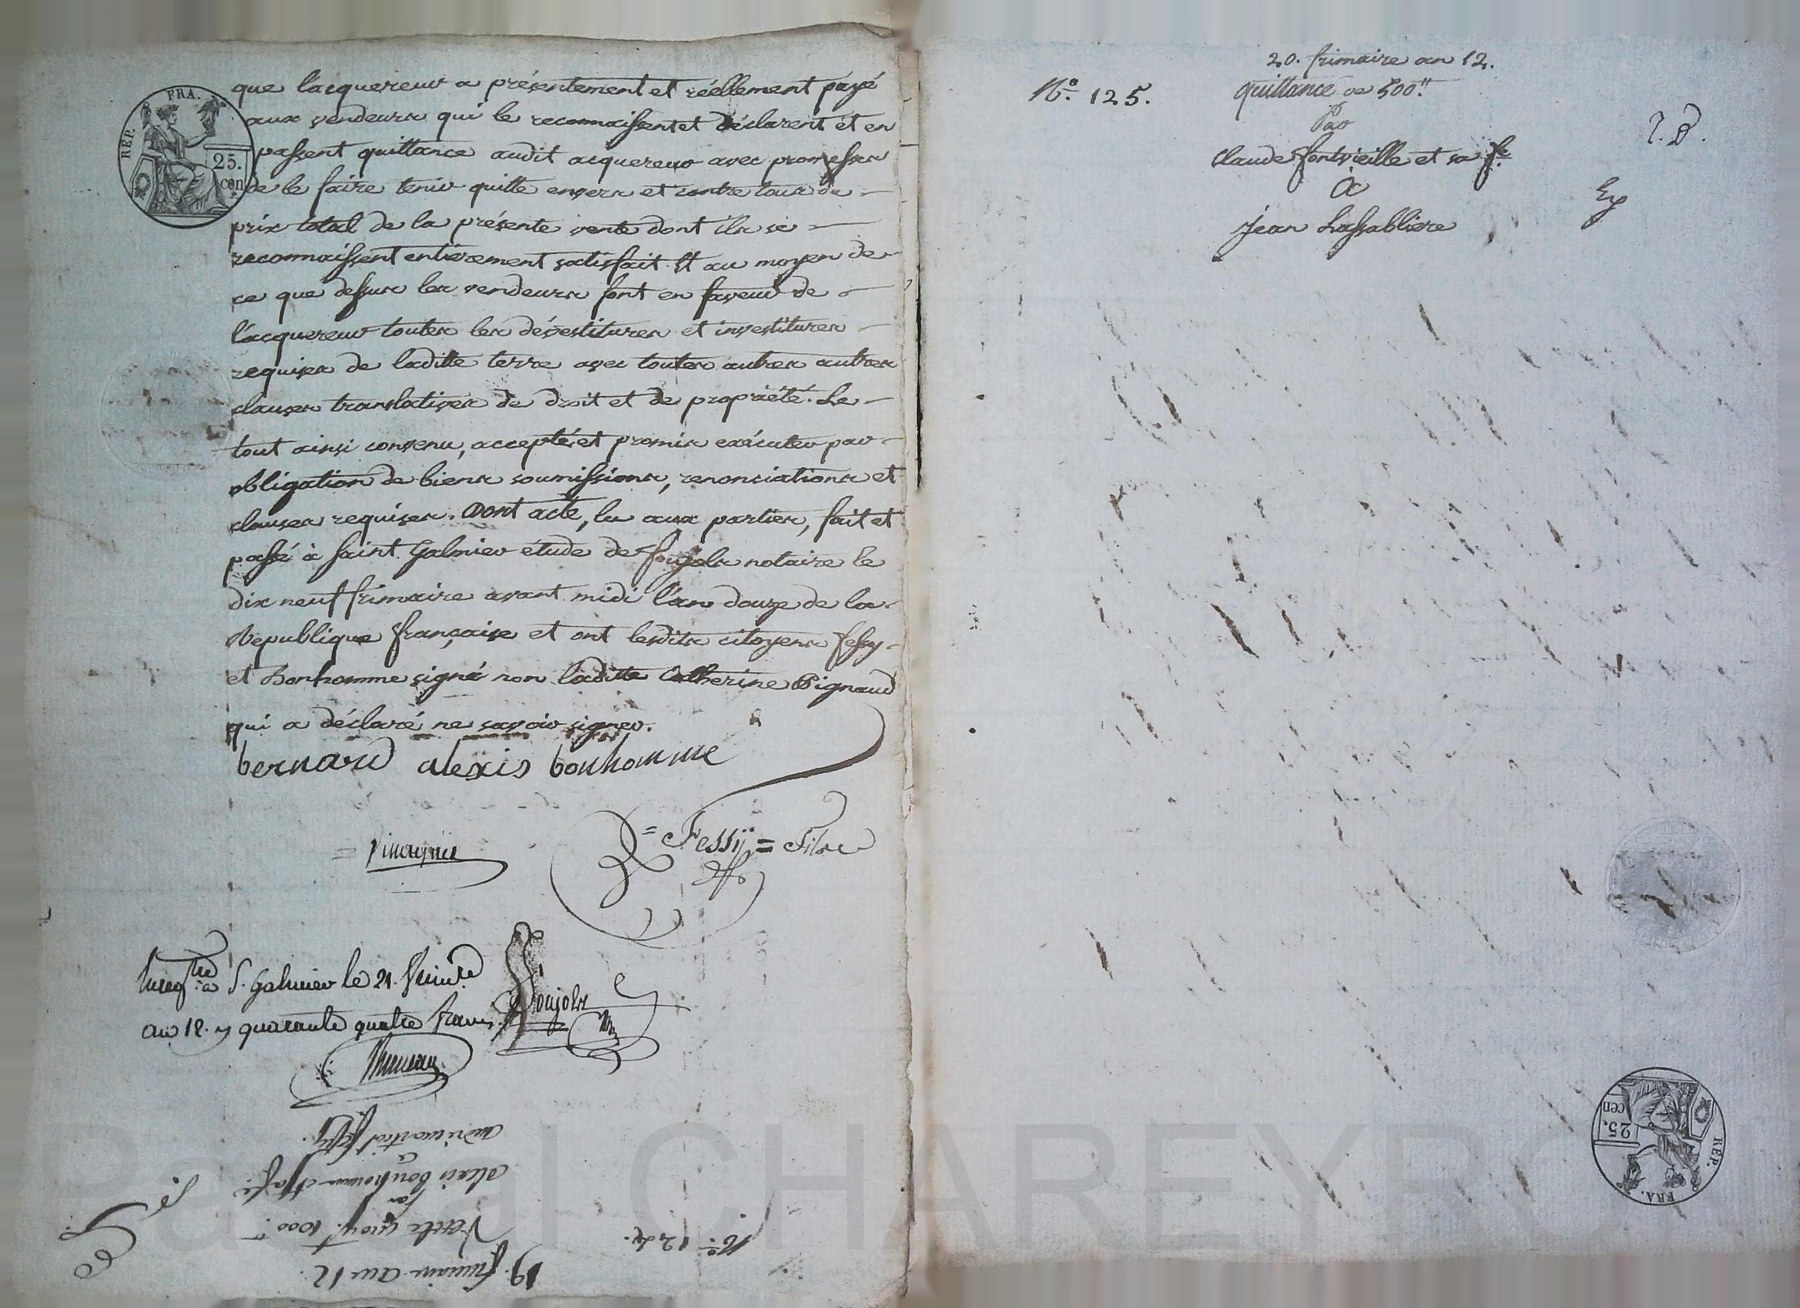 REP. FRA.
25.
cen
que l'acquereur a présentement et réellement payé
aux vendeurs qui le reconnaissent et déclarent et en
passent quittance audit acquereur avec promesse
de le faire tenir quitte envers et contre tous du
prix total de la présente vente dont ils se
reconnaissent entièrement satisfait. Et au moyen de
ce que dessus les vendeurs font en faveur de
l'acquereur toutes les dévestitures et investitures
requises de laditte terre avec toutes autres autres
clauses translatives de droit et de propriété. Le
tout ainsi convenu, accepté et promis exécuter par
obligation de biens soumissions, renonciations et
clauses requises. Dont acte, lu aux parties, fait et
passé à Saint Galmier étude de Poujols notaire le
dix neuf frimaire avant midi l'an douze de la
République française et ont lesdits citoyens Fessy
et Bonhomme signé non laditte Catherine Pignaud
qui a déclaré ne savoir signer.
bernard alexis bonhomme
= Fessÿ = Fils
Enregtré à S. Galmier le 21. frimre
an 12. y quarante quatre francs
Poujols
19. frimaire an 12
No. 124.
Vente quoy 1000"
par
alexis bonhomme et sa fe.
à
20. frimaire an 12.
No. 125.
quittance de 500"
Par
Claude fontvieille et sa fe.
à
Jean Lassabliere
Ex
REP. FRA.
25.
cen
Pascal CHAREYRON